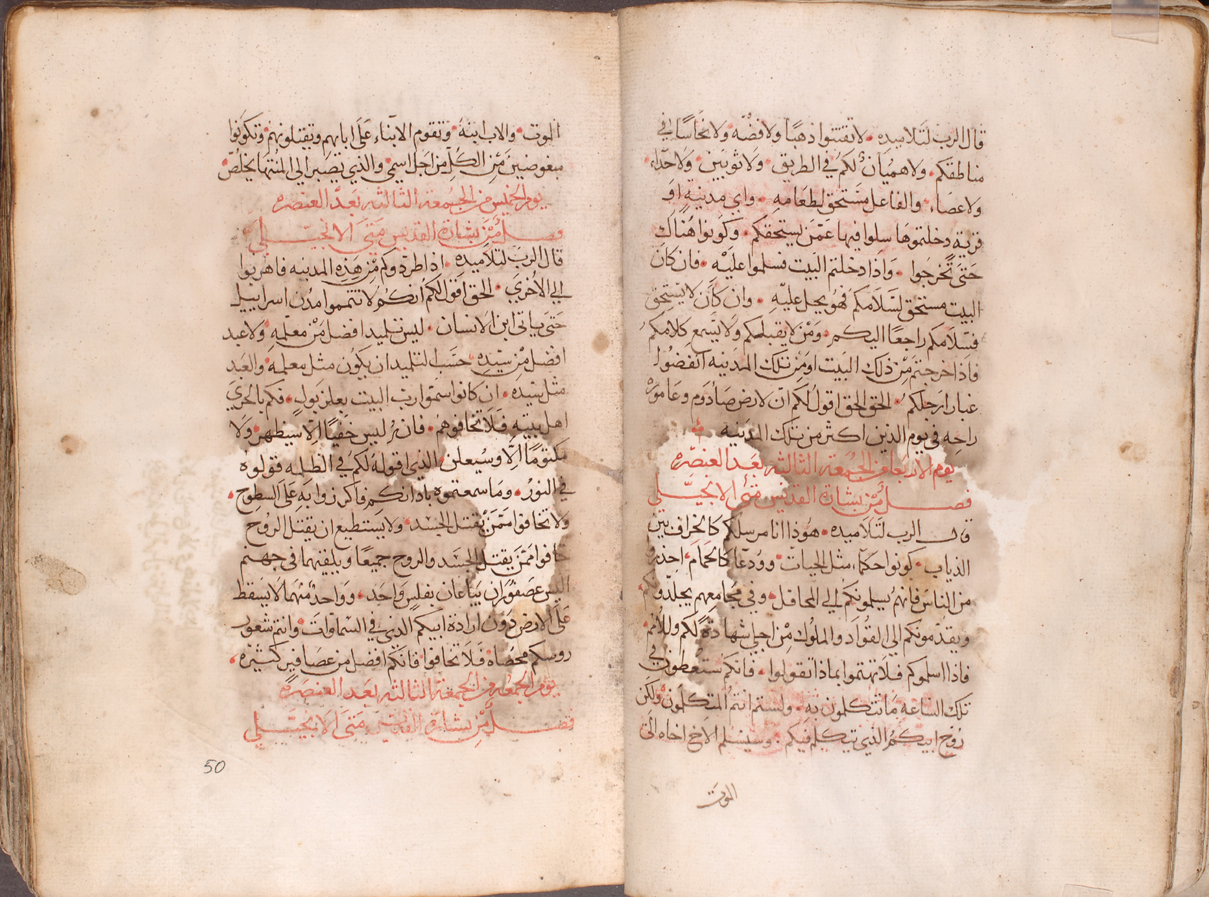 قال الرب لتلاميده • لا تقتنوا ذهبًا ولا فضه ولا نحاسًا في
مناطقكم • ولا هميان لكم في الطريق • ولا ثوبين • ولا حداء
ولا عصا • والفاعل مستحق لطعامه • واي مدينه او
قريه دخلتموها سلوا فيها عمن يستحقكم • وكونوا هناك
حتى تخرجوا • واذا دخلتم البيت فسلموا عليه • فان كان
البيت مستحق لسلامكم فهو يحل عليه • وان كان لا يستحق
فسلامكم راجعًا اليكم • ومن لا يقبلكم ولا يسمع كلامكم
فاذا خرجتم من ذلك البيت او من تلك المدينه انفضوا
غبار ارجلكم • الحق الحق اقول لكم ان لارض صادوم وعاموره
راحه في يوم الدين اكثر من تلك المدينه •
يوم الاربعا من الجمعة الثالثه بعد العنصره
فصل من بشارة القديس متى الانجيلي
قال الرب لتلاميده • هوذا انا مرسلكم كالخراف بين
الدياب • كونوا حكما مثل الحيات • وودعا كالحمام • احذروا
من الناس فانهم يسلمونكم الي المحافل • وفي مجامعهم يجلدوكم •
ويقدمونكم الي القواد والملوك من اجلي شهادة لكم وللامم •
فاذا اسلموكم فلا تهتموا بماذا تقولوا • فانكم ستعطون في
تلك الساعه ما تتكلمون به • ولستم انتم المتكلمون ولكن
روح ابيكم الذي يتكلم فيكم • وسيسلم الاخ اخاه الى
الموت
الموت • والاب ابنه • وتقوم الابناء على ابايهم وتقتلونهم • وتكونوا
مبغوضين من الكل من اجل اسمي • والذي يصبر الي المنتها يخلص •
يوم الخميس من الجمعة الثالثه بعد العنصره
فصل من بشارة القديس متى الانجيلي
قال الرب لتلاميده • اذا طردوكم من هذه المدينه فاهربوا
الي الاخري • الحق اقول لكم انكم لا تتمموا مدن اسراييل
حتى ياتي ابن الانسان • ليس تلميد افضل من معلمه • ولا عبد
افضل من سيده • حسب التلميد ان يكون مثل معلمه • والعبد
مثل سيده • ان كانوا سموا رب البيت بعلزبول • فكم بالحري
اهل بيته • فلا تخافوهم • فانه ليس خفيًا الا سيظهر • ولا
مكتومًا الا وسيعلن • الذي اقوله لكم في الظلمه قولوه
في النور • وما سمعتموه باذانكم فاكرزوا به على السطوح •
ولا تخافوا ممن يقتل الجسد • ولا يستطيع ان يقتل الروح
خافوا ممن يقتل الجسد والروح جميعًا ويلقيهما في جهنم
اليس عصفوران يباعان بفلس واحد • وواحد منهما لا يسقط
على الارض دون ارادة ابيكم الدي في السماوات • وانتم شعور
روسكم محصاه • فلا تخافوا فانكم افضل من عصافير كثيره •
يوم الجمعه من الجمعة الثالثه بعد العنصره
فصل من بشارة القديس متى الانجيلي
50